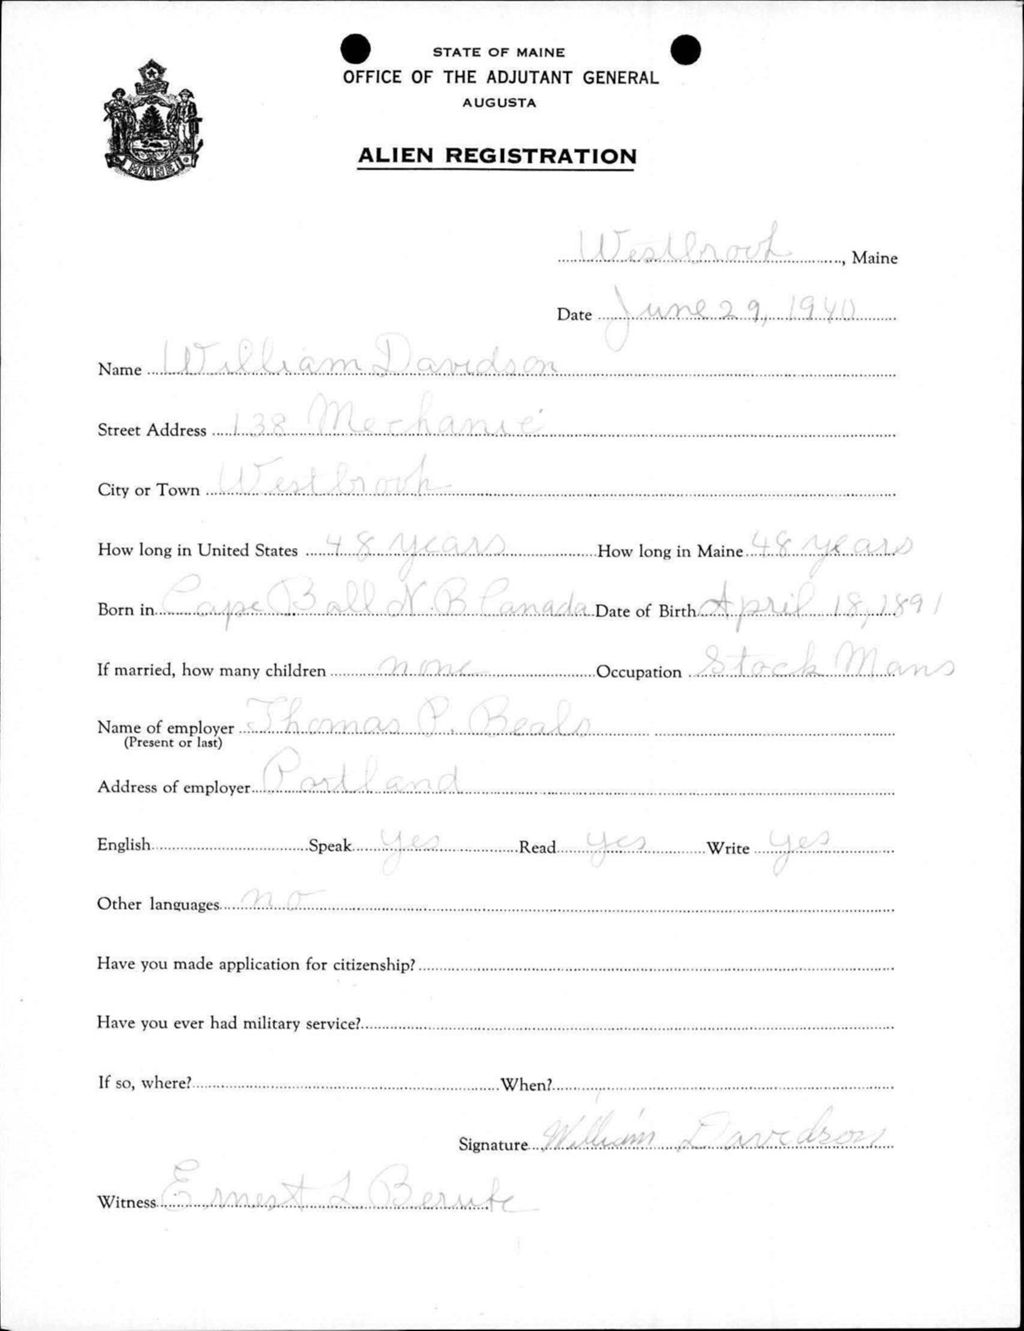 STATE OF MAINE
OFFICE OF THE ADJUTANT GENERAL
AUGUSTA
ALIEN REGISTRATION
MAINE
Westbrook, Maine
Date June 29, 1940
Name William Davidson
Street Address 138 Mechanic
City or Town Westbrook
How long in United States 48 years How long in Maine 48 years
Born in Cape Ball N.B Canada Date of Birth April 18, 1891
If married, how many children none Occupation Stock Mans
Name of employer Thomas P. Beals
(Present or last)
Address of employer Portland
English Speak yes Read yes Write yes
Other languages no
Have you made application for citizenship?
Have you ever had military service?
If so, where? When?
Signature William Davidson
Witness Ernest L